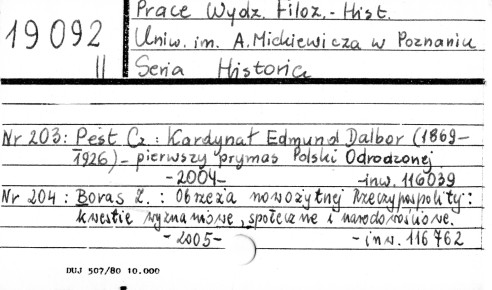 Prace Wydz. Filoz.-Hist.
19092 Uniw. im. A. Mickiewicza w Poznaniu
II Seria Historia
Nr 203: Pest Cz.: Kardynał Edmund Dalbor (1869-
1926) - pierwszy prymas Polski Odrodzonej
- 2004 - - inw. 116039
Nr 204: Boras Z.: Obrzeża nowożytnej Rzeczypospolity:
kwestie wyznaniowe, społeczne i narodowościowe.
- 2005 - - inw. 116762
DUJ 507/80 10.000